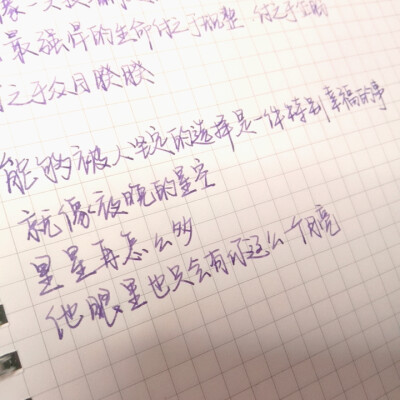 最强悍的生命付之于
之于众目睽睽
能够被人坚定的选择是一件特别幸福的事
就像夜晚的星空
星星再怎么多
他眼里也只会有你这么一个月亮